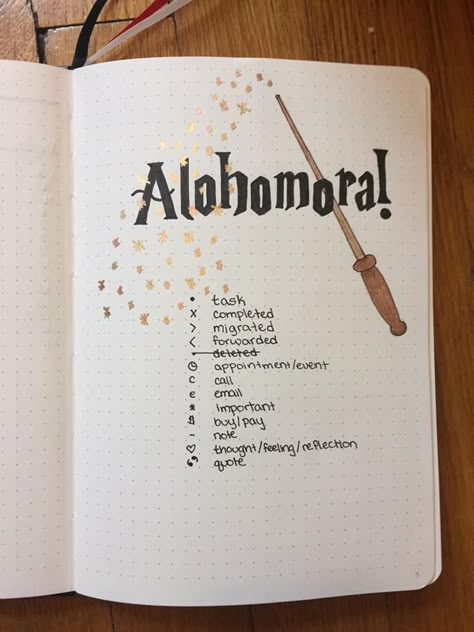 Alohomora!
• task
X completed
> migrated
< forwarded
• deleted
appointment/event
c call
e email
* important
$ buy/pay
– note
♡ thought/feeling/reflection
quote